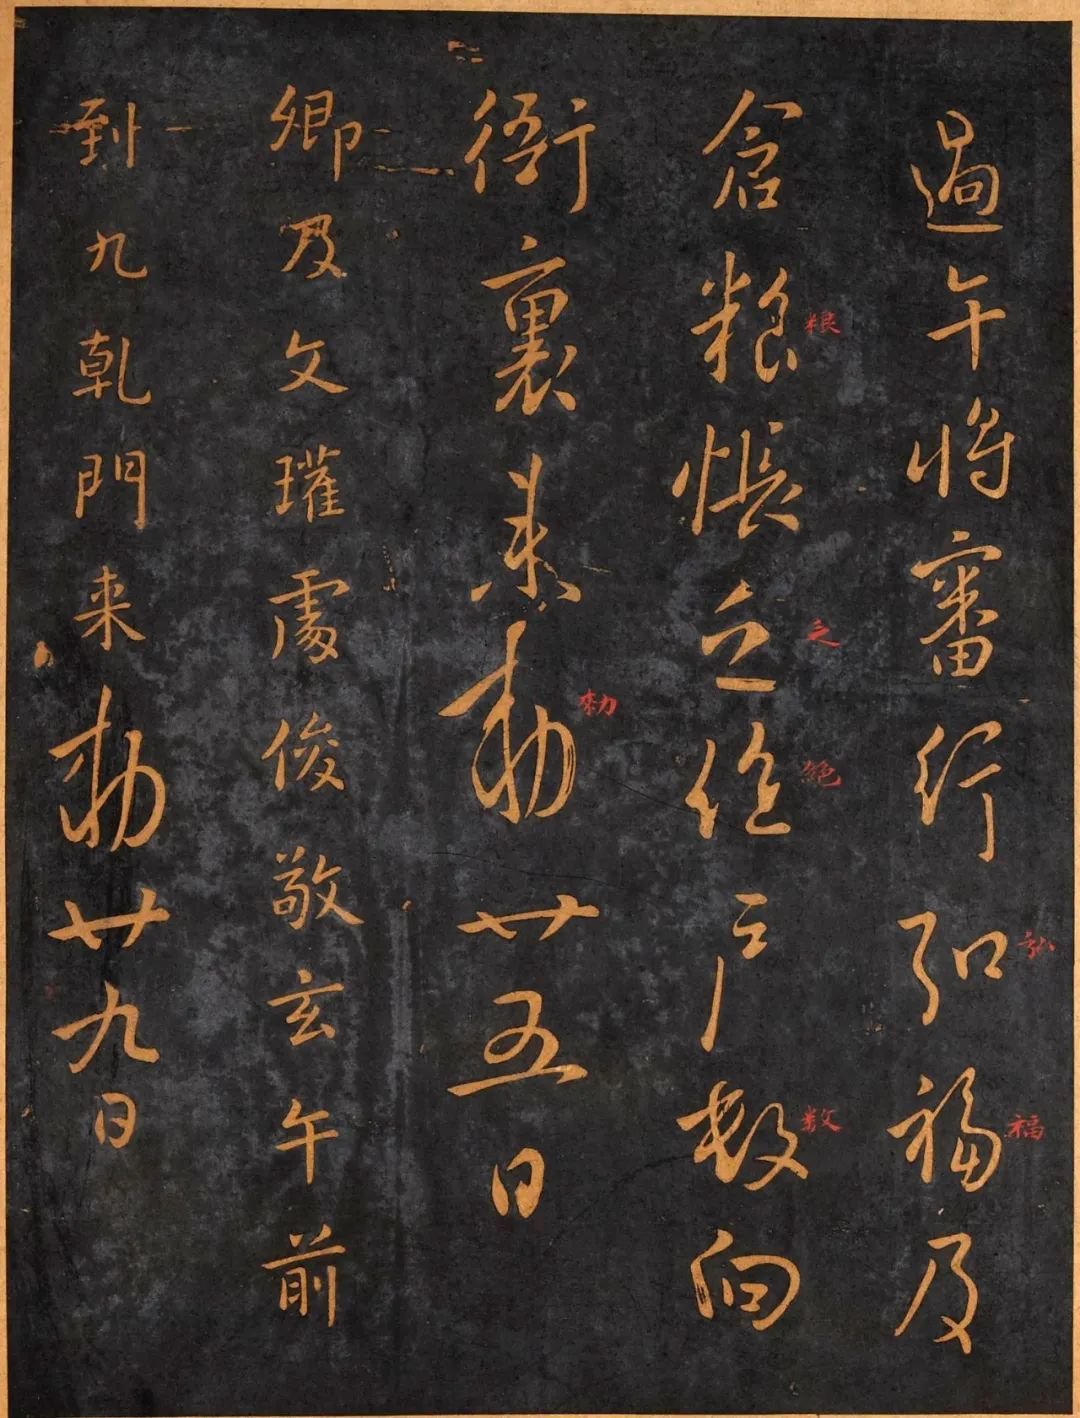 過午将審行弘福及
弘
福
倉粮帳之絶户數向
粮
之
絶
数
衙裏来勅廿五日
勅
卿及文瓘處俊敬玄午前
到九乾門来勅廿九日